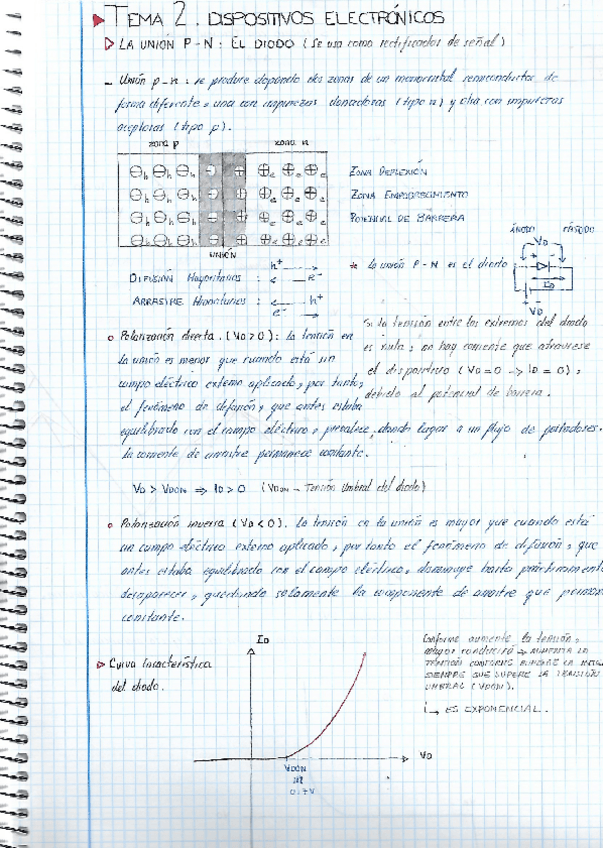 TEMA 2. DISPOSITIVOS ELECTRÓNICOS
LA UNIÓN P-N: EL DIODO (Se usa como rectificador de señal)
- Unión p-n: se produce dopando dos zonas de un monocristal semiconductor de
forma diferente, una con impurezas donadoras (tipo n) y otra con impurezas
aceptoras (tipo p).
zona p zona n
ZONA DEPLEXIÓN
ZONA EMPOBRECIMIENTO
POTENCIAL DE BARRERA
UNIÓN
DIFUSIÓN Mayoritarios : h+ e-
ARRASTRE Minoritarios : h+ e-
* La unión P-N es el diodo
ÁNODO CÁTODO
VD
ID
VD
Si la tensión entre los extremos del diodo
es nula, no hay corriente que atraviese
el dispositivo (VD=0 -> ID=0),
debido al potencial de barrera.
o Polarización directa. (VD>0): la tensión en
la unión es menor que cuando está sin
campo eléctrico externo aplicado, por tanto,
el fenómeno de difusión, que antes estaba
equilibrado con el campo eléctrico, prevalece, dando lugar a un flujo de portadores.
la corriente de arrastre permanece constante.
VD > VDON ⇒ ID > 0 (VDON - Tensión Umbral del diodo)
o Polarización inversa (VD<0). La tensión en la unión es mayor que cuando está
un campo eléctrico externo aplicado, por tanto el fenómeno de difusión, que
antes estaba equilibrado con el campo eléctrico, disminuye hasta prácticamente
desaparecer, quedando solamente la componente de arrastre que
constante.
Curva Característica
del diodo.
ID
VD
VDON
0.7V
Conforme aumente la tensión,
mayor conducirá → AUMENTA LA
TENSIÓN CONFORME AUMENTE LA
SIEMPRE QUE SUPERE LA TENSIÓN
UMBRAL (VDON).
↳ ES EXPONENCIAL.